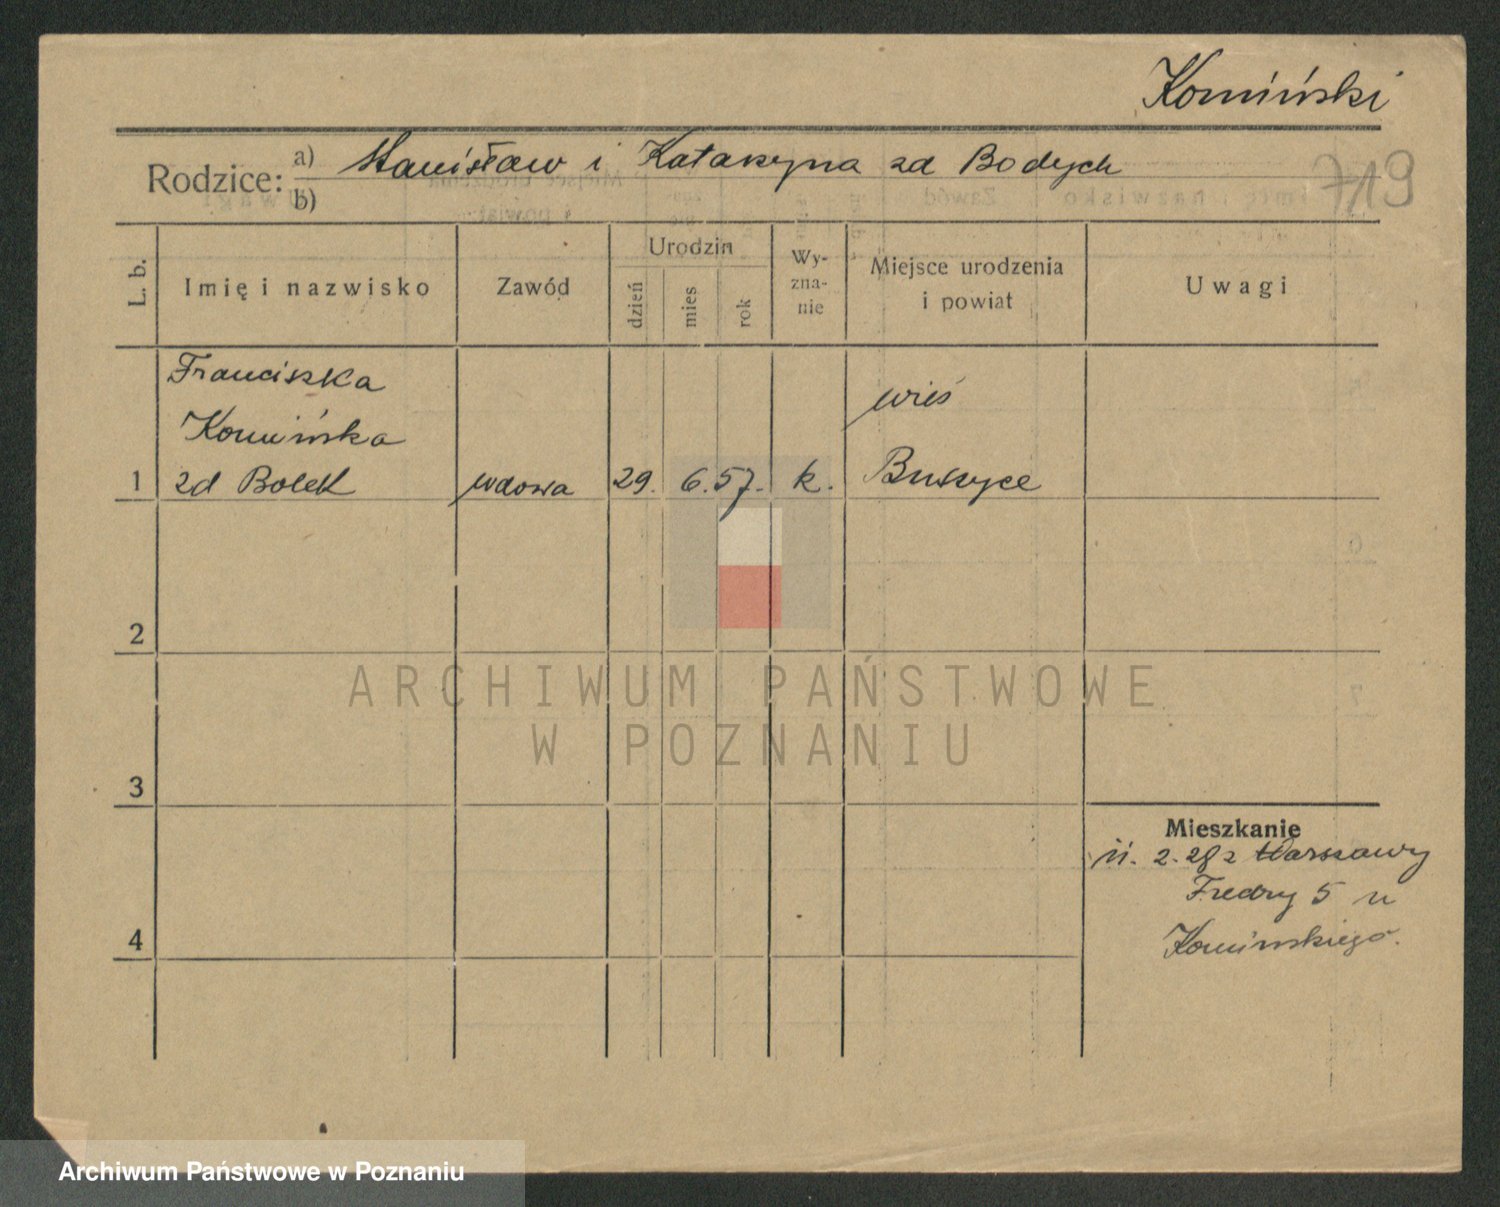 Komiński
Rodzice: a) Stanisław i Katarzyna zd Bodych
b)
719
L. b.
Imię i nazwisko
Zawód
Urodzin
dzień
mies
rok
Wy-
zna-
nie
Miejsce urodzenia
i powiat
Uwagi
Franciszka
Komińska
1 zd Bolek wdowa 29. 6. 57. k.
wieś
Buszyce
2
3
4
ARCHIWUM PAŃSTWOWE
W POZNANIU
Mieszkanie
11. 2. 28 z Warszawy
Fredry 5 u
Komińskiego.
Archiwum Państwowe w Poznaniu